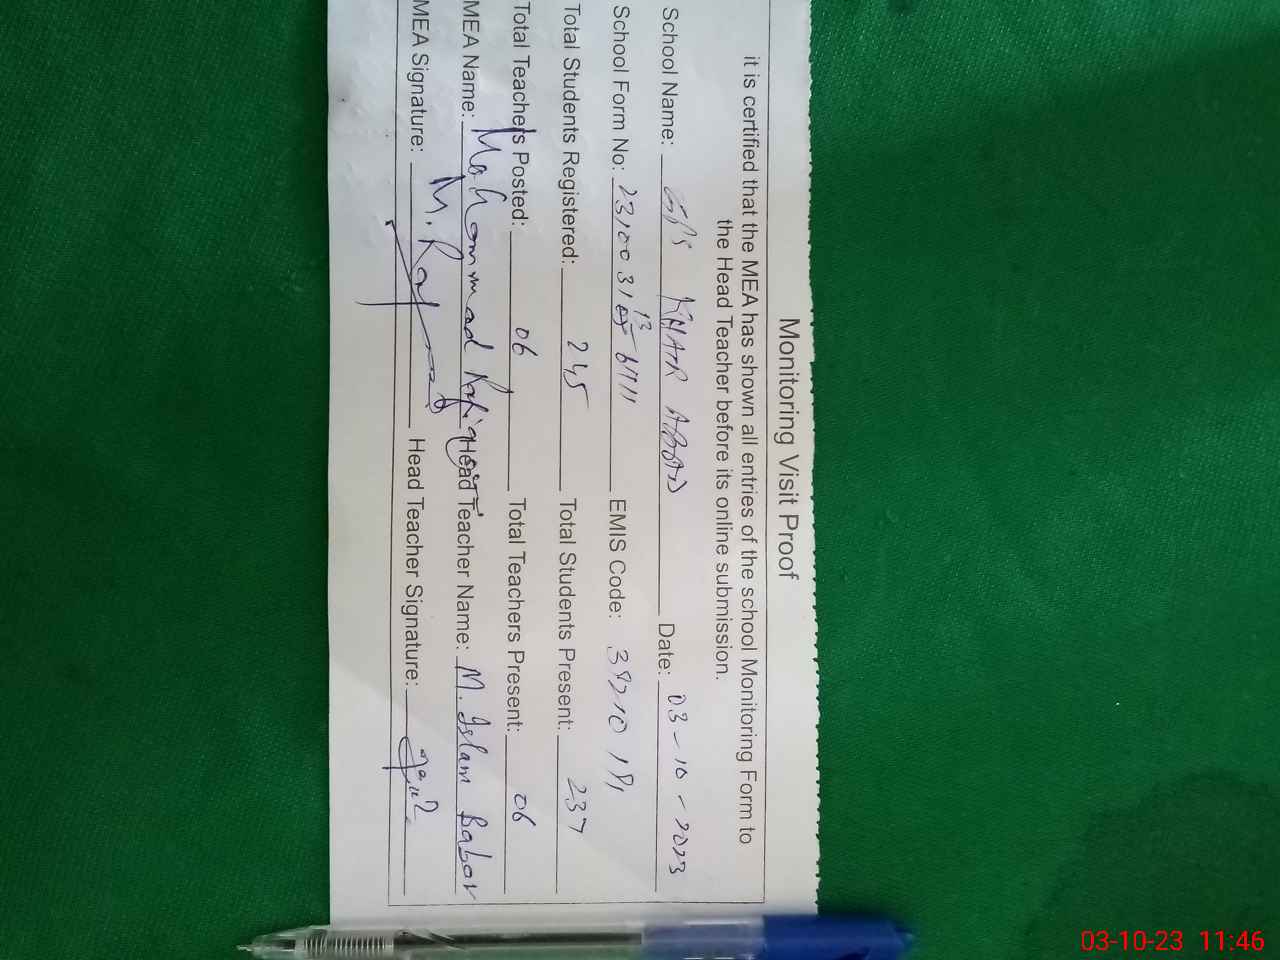 Monitoring Visit Proof
it is certified that the MEA has shown all entries of the school Monitoring Form to
the Head Teacher before its online submission.
School Name: GPS KHAIR ABAD Date: 03-10-2023
School Form No: 2310031 13 6711 EMIS Code: 38210181
Total Students Registered: 245 Total Students Present: 237
Total Teachers Posted: 06 Total Teachers Present: 06
MEA Name: Mohammad Rafique Head Teacher Name: M. Islam Babar
MEA Signature: Head Teacher Signature:
03-10-23 11:46